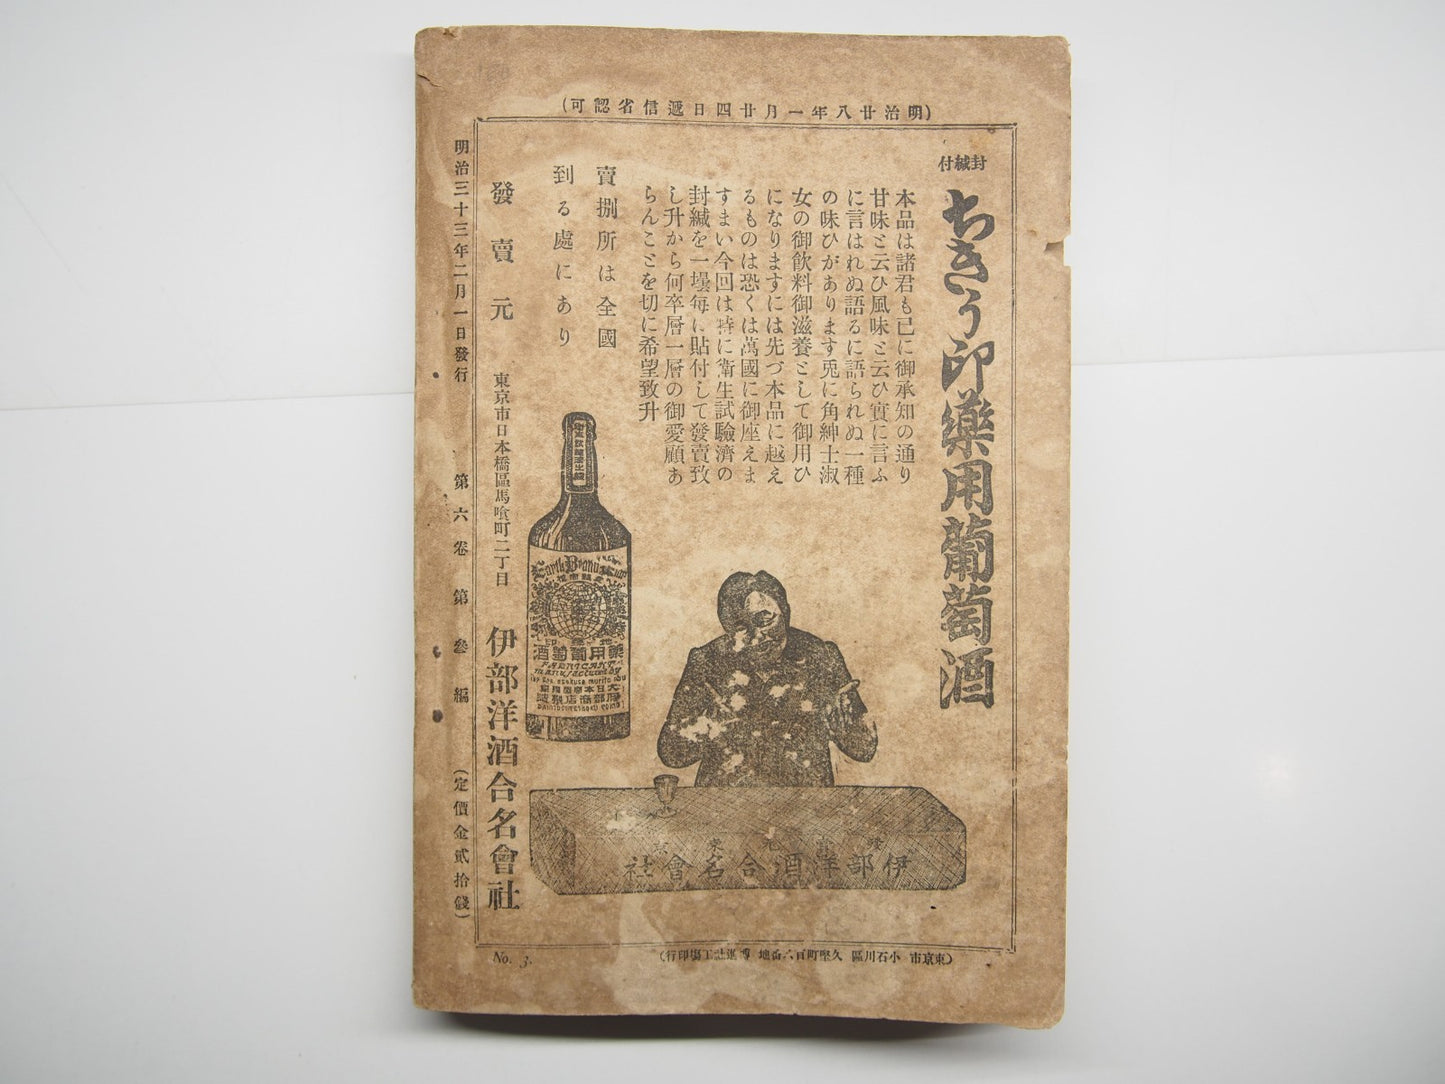 (明治廿八年一月廿四日遞信省認可)
封緘付
ちきう印藥用葡萄酒
本品は諸君も已に御承知の通り
甘味と云ひ風味と云ひ實に言ふ
に言はれぬ語るに語られぬ一種
の味ひがあります兎に角紳士淑
女の御飲料御滋養として御用ひ
になりますには先づ本品に越え
るものは恐くは萬國に御座えま
すまい今回は特に衛生試驗濟の
封緘を一壜每に貼付して發賣致
し升から何卒層一層の御愛顧あ
らんことを切に希望致升
賣捌所は全國
到る處にあり
發賣元
東京市日本橋區馬喰町二丁目
伊部洋酒合名會社
明治三十三年二月一日發行
第六卷第參編
(定價金貳拾錢)
Earth Brand
地球印
藥用葡萄酒
manufactured by
發賣元東京
伊部洋酒合名會社
(東京市小石川區久堅町百八番地博進社工塲印行)
No. 3.